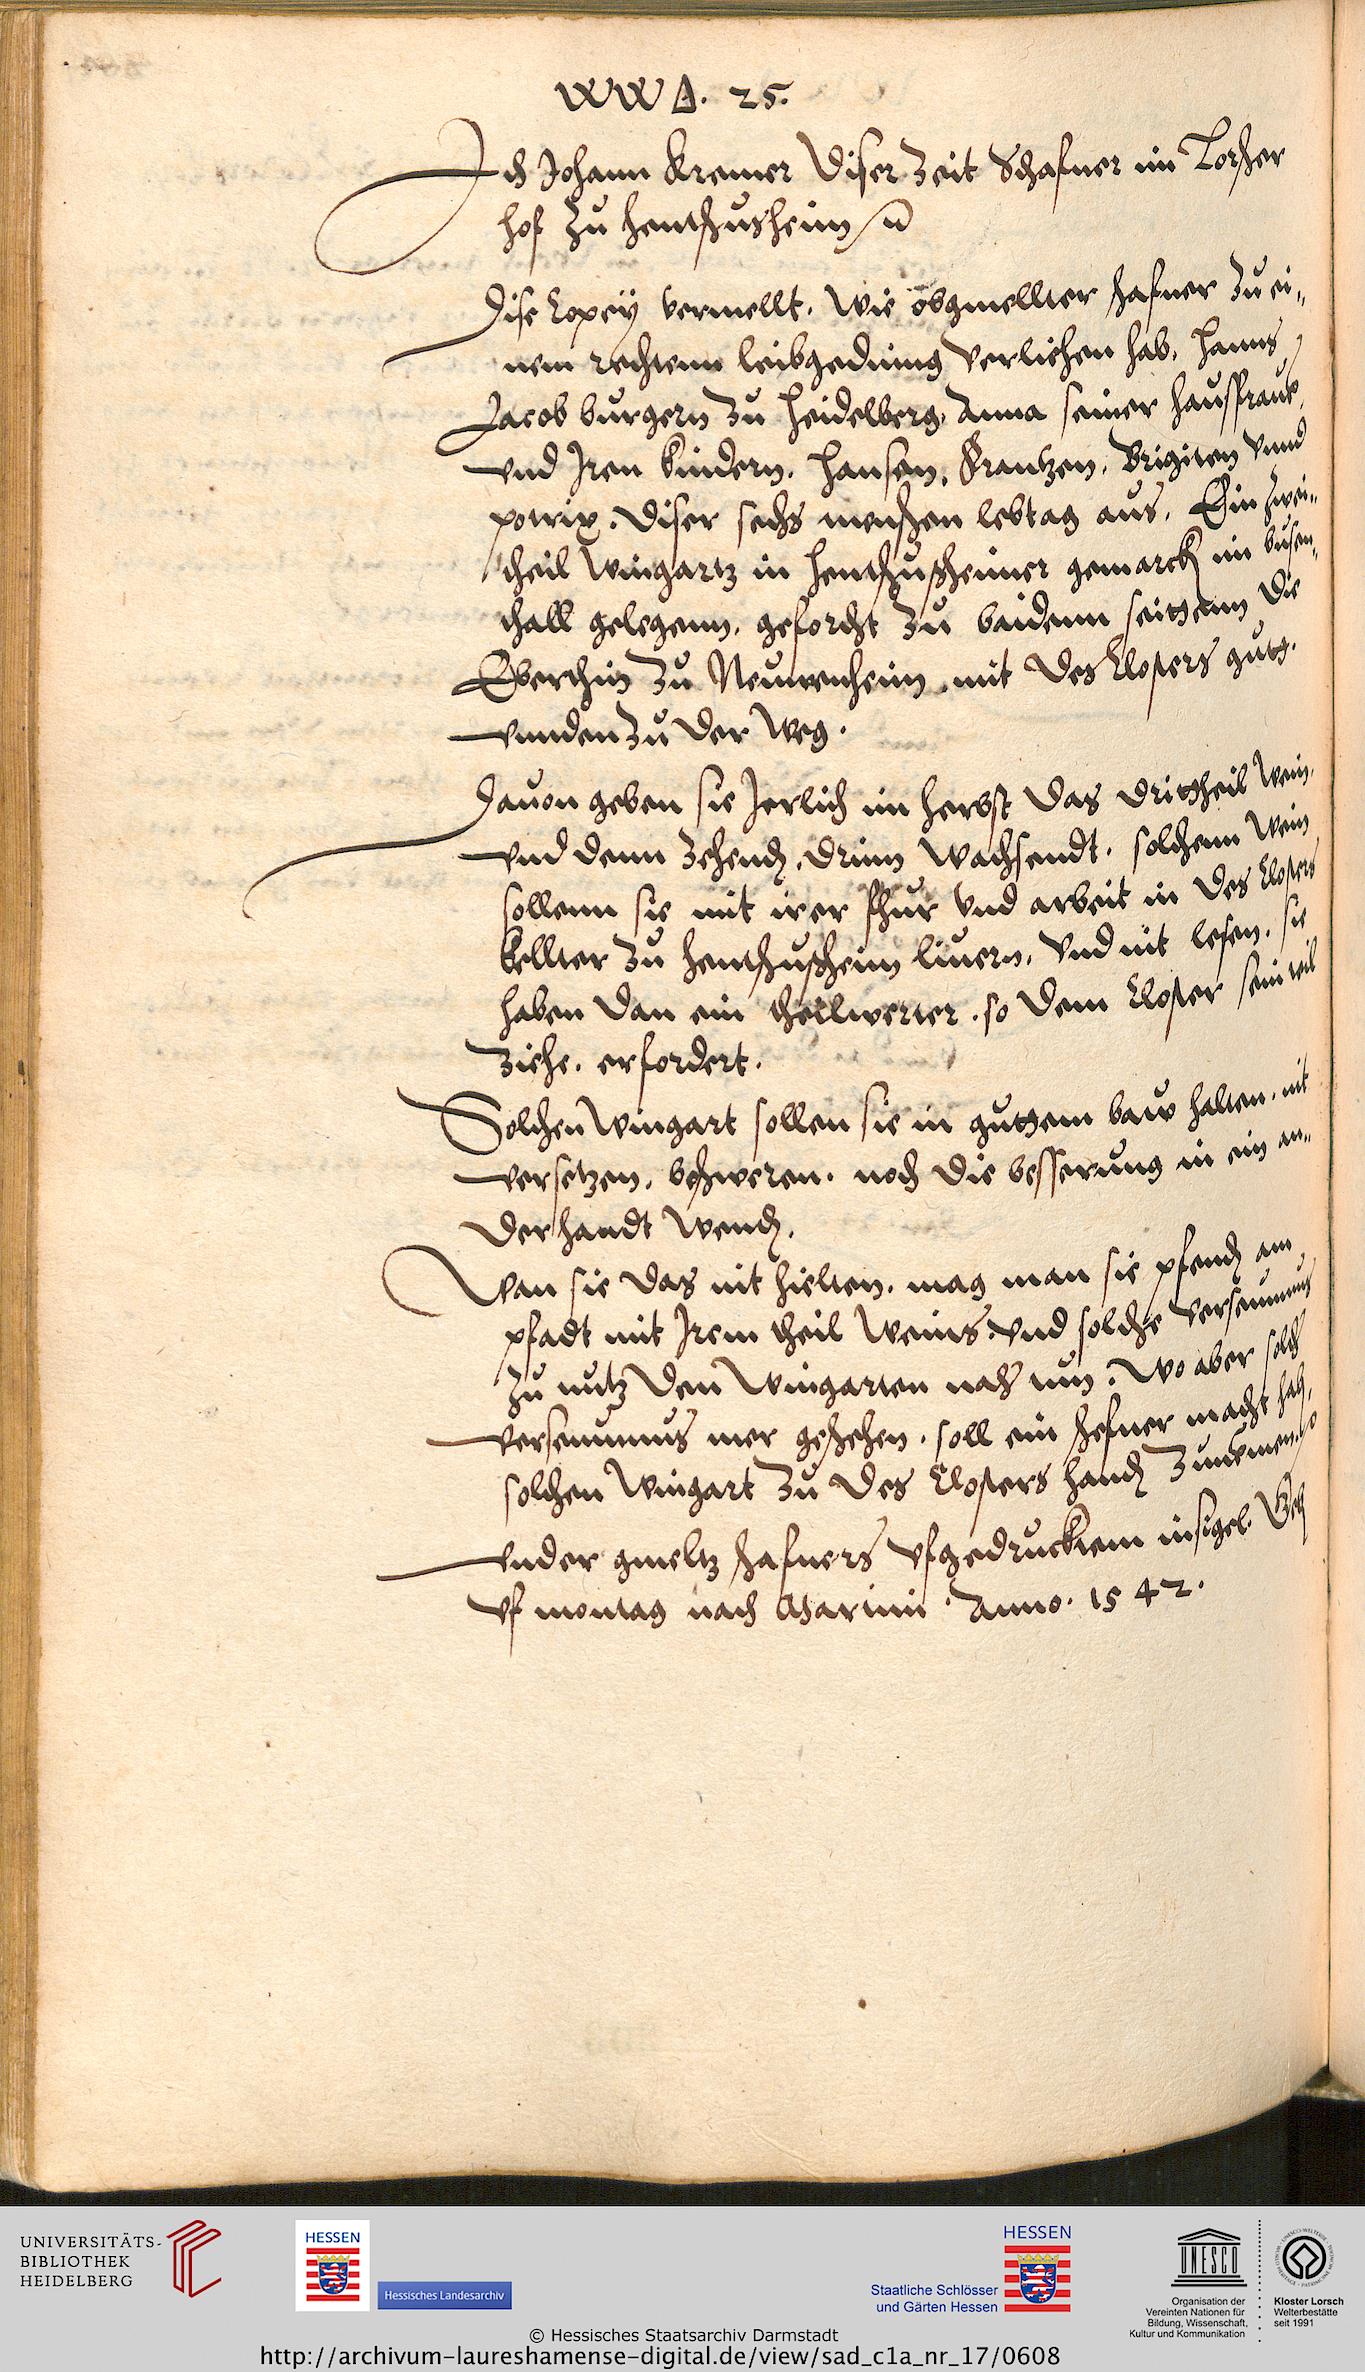 WW A. 25.
Ich Johann Kremer Diser Zeit Schafner im Lorscher
hof zu hentschusheim
Dise Copey vermellt. Wie obgmellter schafner zu ei-
nem rechtenn leibgeding verlichen hab, Hanns
Jacob burgern zu Heidelberg, Anna seiner hausfraw,
vnd Jren kindern. Hansen, Frantzen, Brigiten vnnd
Diser sechs menschen lebtag aus. Ein zwei-
theil Wingartz in hentschusheimer gemarck im busen-
thall gelegenn, geforcht zu baidenn seittenn Die
zu Neuwenheim, mit Des Closters gutt.
vnnden zu der Weg.
Dauon geben sie Jerlich im herbst Das Drittheil Wein,
vnd denn Zehend, Drinn Wachsendt. solchenn Wein
sollenn sie mit irer fhur vnd arbeit in Des Closters
kellter zu hentschusheim liuern, vnd nit lesen. sie
haben Dan ein so Dem Closter sein teil
ziehe, erfordert.
Solchen Wingart sollen sie in guttem baw halten, nit
versetzen, beschweren, noch Die besserung in ein an-
der handt Wend.
Wan sie Das nit hielten, mag man sie pfend am
pfadt mit Jrem theil Weins vnd solche verseumnus
zu nutz Den Wingarten Wo aber solch
verseumnus mer geschehen, soll ein schefner macht hab,
solchen Wingart zu Des Closters hand so
vnder gmeltz schafners vfgedrucktem insigel. Geb
vf montag nach Martini. Anno. 1542.
UNIVERSITÄTS-
BIBLIOTHEK
HEIDELBERG
HESSEN
Hessisches Landesarchiv
HESSEN
Staatliche Schlösser
und Gärten Hessen
UNESCO
Organisation der
Vereinten Nationen für
Bildung, Wissenschaft,
Kultur und Kommunikation
Kloster Lorsch
Welterbestätte
seit 1991
© Hessisches Staatsarchiv Darmstadt
http://archivum-laureshamense-digital.de/view/sad_c1a_nr_17/0608